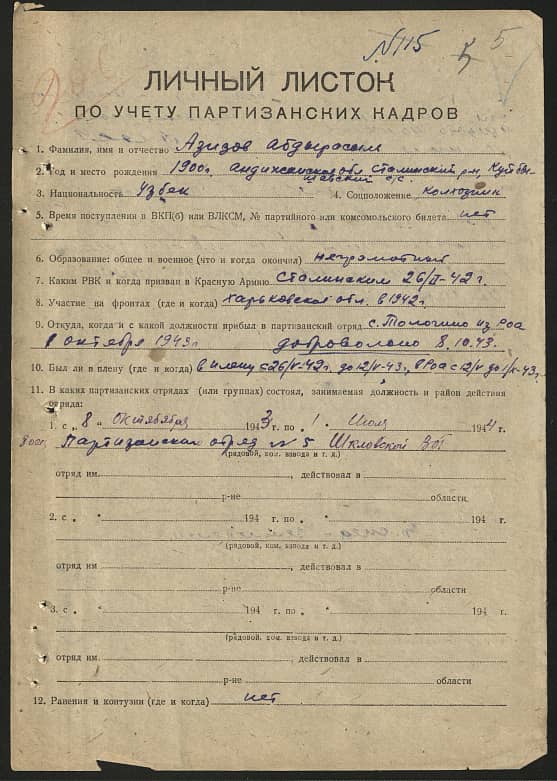 №115 5
ЛИЧНЫЙ ЛИСТОК
ПО УЧЕТУ ПАРТИЗАНСКИХ КАДРОВ
1. Фамилия, имя и отчество Азизов Абдырасым
2. Год и место рождения 1900г. Андижанская обл. Сталинский р-н, Куйбы-
шевский с/с.
3. Национальность Узбек 4. Соцположение колхозник
5. Время поступления в ВКП(б) или ВЛКСМ, № партийного или комсомольского билета нет
6. Образование: общее и военное (что и когда окончил) неграмотный
7. Каким РВК и когда призван в Красную Армию Сталинским 26/II-42 г.
8. Участие на фронтах (где и когда) Харьковской обл. в 1942г.
9. Откуда, когда и с какой должности прибыл в партизанский отряд с. Толочино из РОА
8 октября 1943г. добровольно 8.10.43.
10. Был ли в плену (где и когда) в плену с 26/V-42г. до 12/V-43г., в РОА с 12/V до
11. В каких партизанских отрядах (или группах) состоял, занимаемая должность и район действия
отряда:
1. с „ 8 “ Октября 1943 г. по „ 1 “ Июля 1944 г.
Партизанский отряд № 5 Шкловской В.О.
(рядовой, ком. взвода и т. д.)
отряд им. , действовал в
р-не области.
2. с „ “ 194 г. по „ “ 194 г.
(рядовой, ком. взвода и т. д.)
отряд им , действовал в
р-не области
3. с „ “ 194 г. по „ “ 194 г.
(рядовой, ком. взвода и т. д.)
отряд им. , действовал в
р-не области
12. Ранения и контузии (где и когда) нет